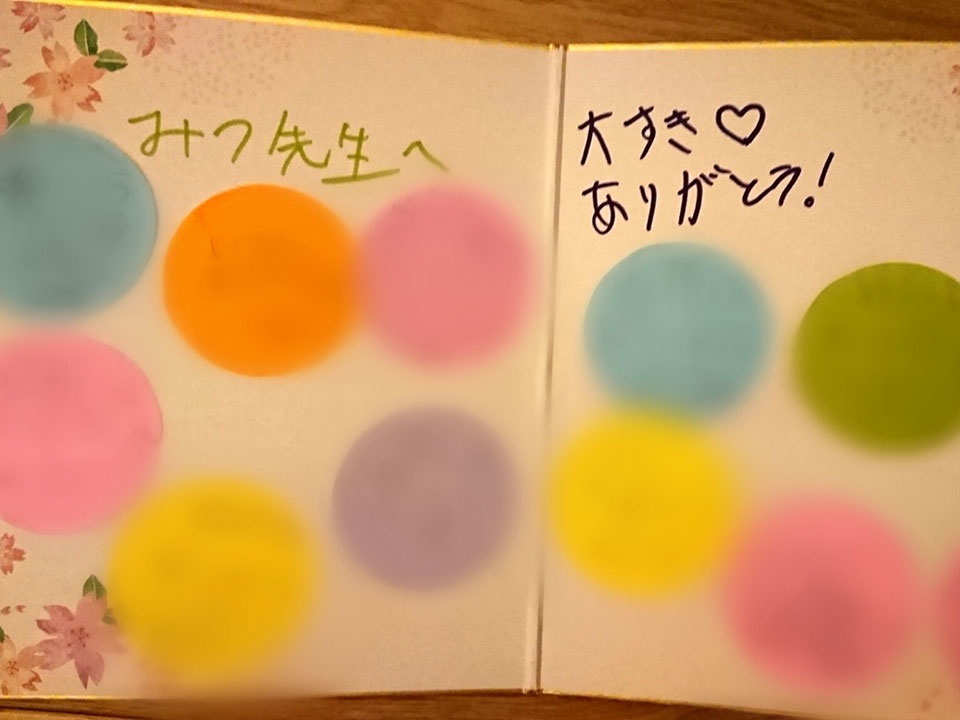 みつ先生へ
大すき♡
ありがとう!